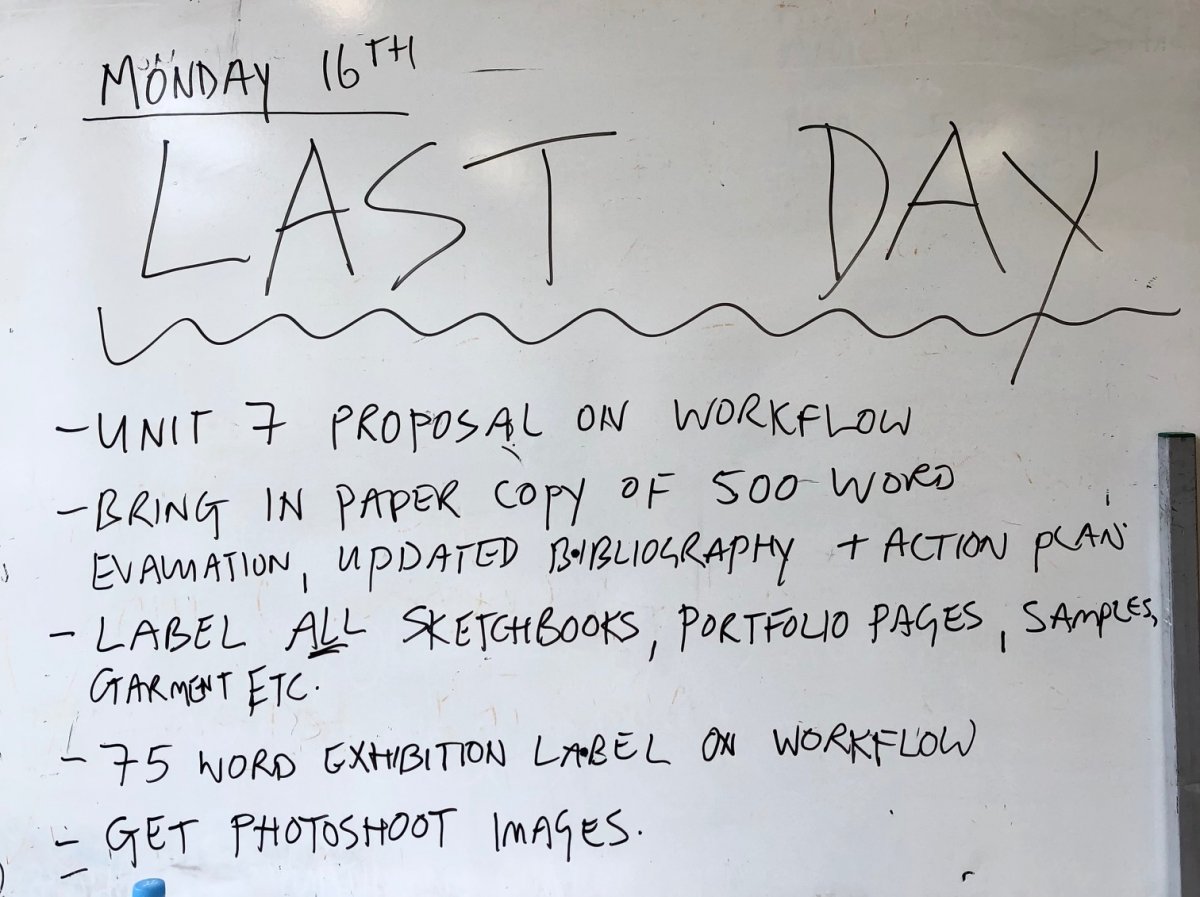 MONDAY 16TH
LAST DAY
- UNIT 7 PROPOSAL ON WORKFLOW
- BRING IN PAPER COPY OF 500 WORD
EVALUATION, UPDATED BIBLIOGRAPHY + ACTION PLAN
- LABEL ALL SKETCHBOOKS, PORTFOLIO PAGES, SAMPLES,
GARMENT ETC.
- 75 WORD EXHIBITION LABEL ON WORKFLOW
- GET PHOTOSHOOT IMAGES.